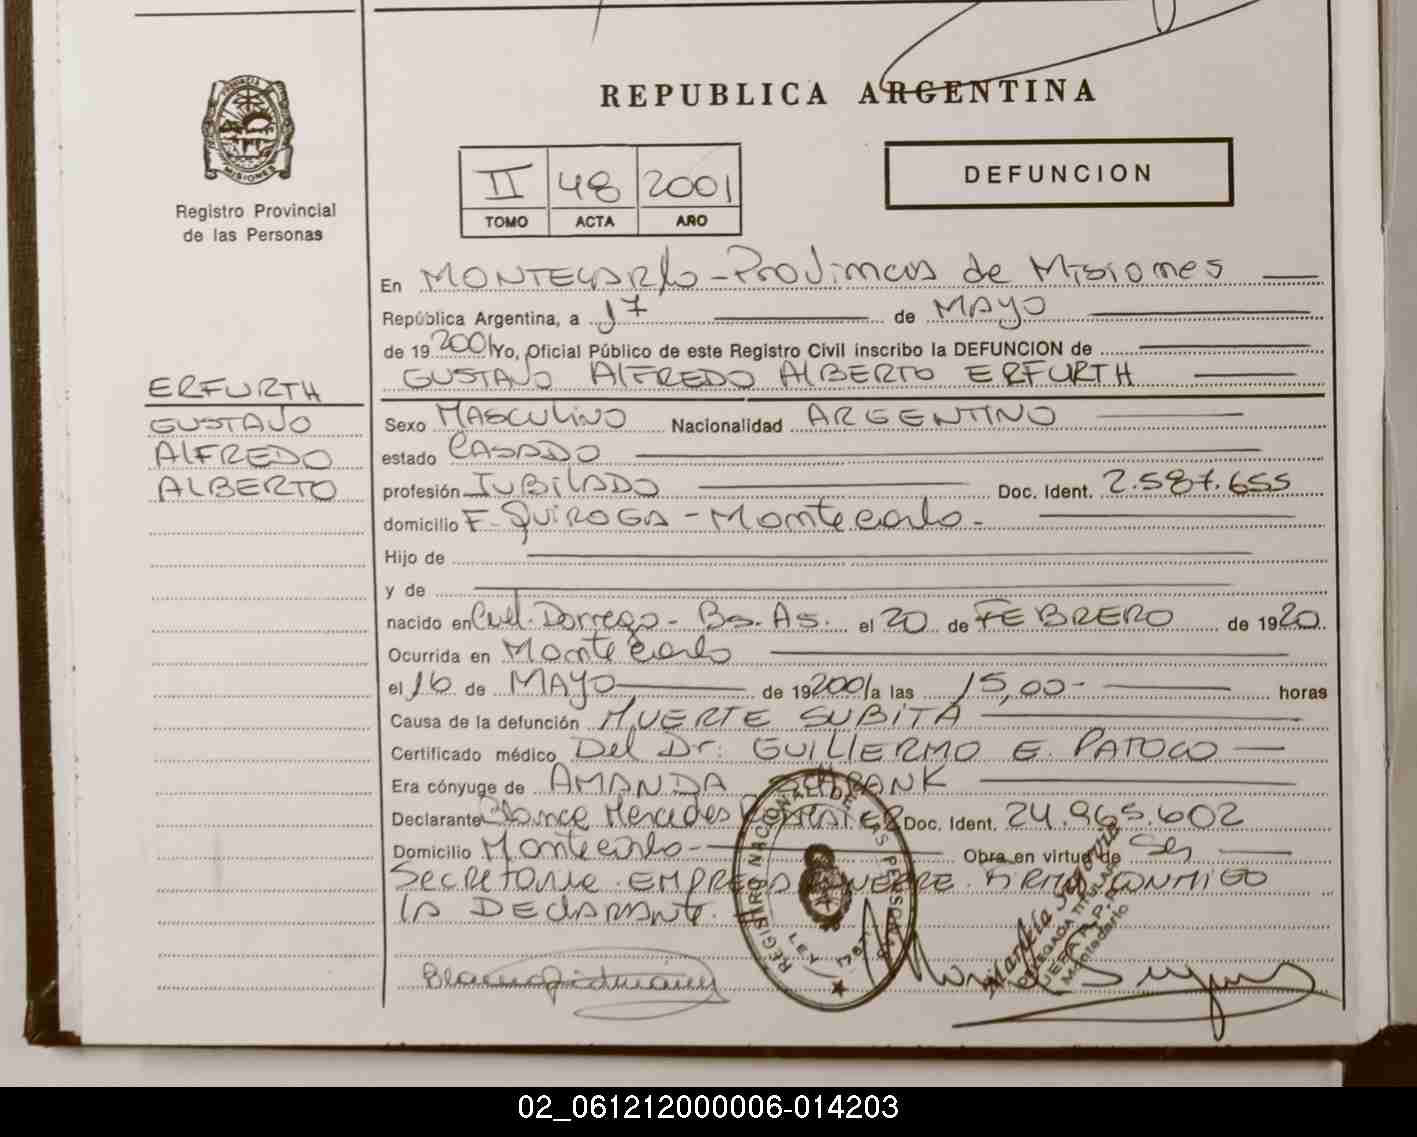 REPUBLICA ARGENTINA
PROVINCIA DE MISIONES
Registro Provincial
de las Personas
II 48 2001
TOMO ACTA AÑO
DEFUNCION
En MONTECARLO - Provincia de Misiones
República Argentina, a 17 de MAYO
de 19 2001 Yo, Oficial Público de este Registro Civil inscribo la DEFUNCION de
GUSTAVO ALFREDO ALBERTO ERFURTH
ERFURTH
GUSTAVO
ALFREDO
ALBERTO
Sexo MASCULINO Nacionalidad ARGENTINO
estado CASADO
profesión JUBILADO Doc. Ident. 2.587.655
domicilio F. QUIROGA - Montecarlo -
Hijo de
y de
nacido en Cnel. Dorrego - Bs. As. el 20 de FEBRERO de 1920
Ocurrida en Montecarlo
el 16 de MAYO de 19 2001 a las 15,00- horas
Causa de la defunción MUERTE SUBITA
Certificado médico Del Dr: GUILLERMO E. PATOCO
Era cónyuge de AMANDA
Declarante Blanca Mercedes Doc. Ident. 24.965.602
Domicilio Montecarlo - Obra en virtud de Ser
Secretaria EMPRESA FUNEBRE. FIRMA CONMIGO
LA DECLARANTE.
REGISTRO NACIONAL DE LAS PERSONAS
LEY 17671
DELEGADA TITULAR
02_061212000006-014203